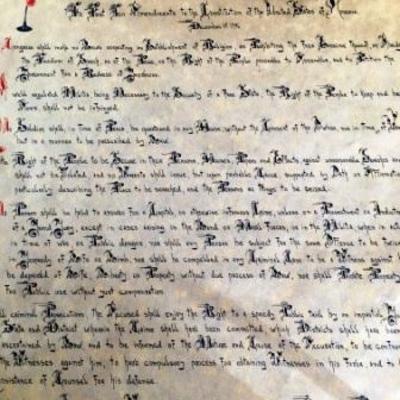 The First Ten Amendments to the Constitution of the United States of
December 15 1791
Congress shall make no Law respecting an Establishment of Religion, or Prohibiting the Free Exercise thereof, or
the Freedom of Speech, or of the Press, or the Right of the People peaceably to Assemble, and to Petition the
Government for a Redress of Grievances.
well regulated Militia being Necessary to the Security of a Free State, the Right of the People to Keep and
Arms, shall not be infringed.
Soldier shall, in Time of Peace, be quartered in any House, without the Consent of the Owner, nor in Time of
but in a manner to be prescribed by Law.
the Right of the People to be Secure in their Persons, Houses, Papers and Effects against unreasonable Searches
shall not be Violated, and no Warrants shall issue, but upon probable Cause, supported by Oath or
particularly describing the Place to be searched, and the Persons or Things to be seized.
Person shall be held to answer for a Capital, or otherwise infamous Crime, unless on a Presentment or
of a Grand Jury, except in cases arising in the Land or Naval Forces, or in the Militia when in
in time of War or Public danger; nor shall any Person be subject for the same Offense to be twice
Jeopardy of Life or Limb; nor shall be compelled in any Criminal Case to be a Witness against
be deprived of Life, Liberty, or Property without due process of Law; nor shall Private Property
For Public use without just compensation.
criminal Prosecutions, the Accused shall enjoy the Right to a speedy Public trial by an impartial
State and District wherein the Crime shall have been committed, which Districts shall have
ascertained by Law and to be informed of the Nature and Cause of the Accusation; to be
the Witnesses against him; to have compulsory process for obtaining Witnesses in his Favor, and to
Assistance of Counsel for his defense.